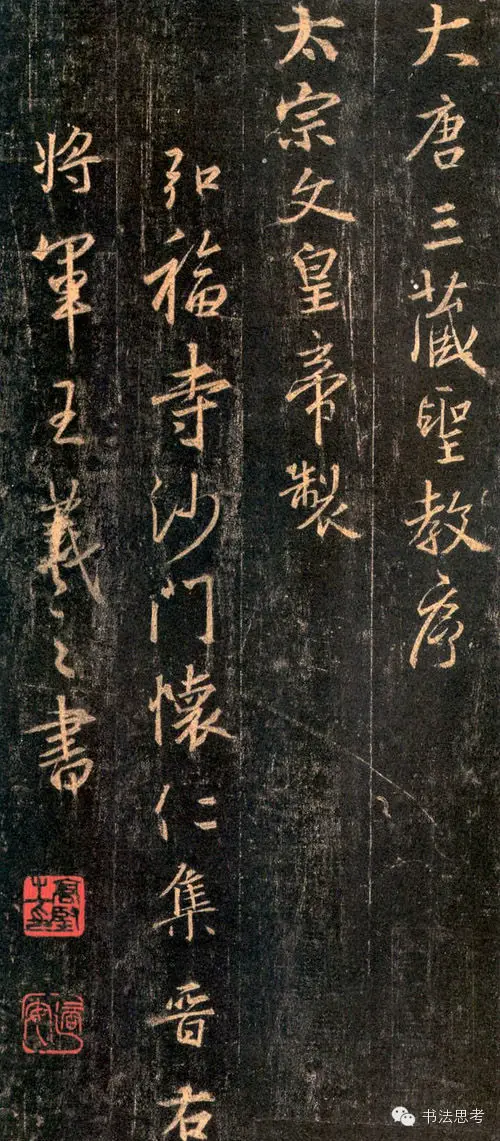 大唐三藏聖教序
太宗文皇帝製
弘福寺沙門懷仁集晉右
將軍王羲之書
书法思考